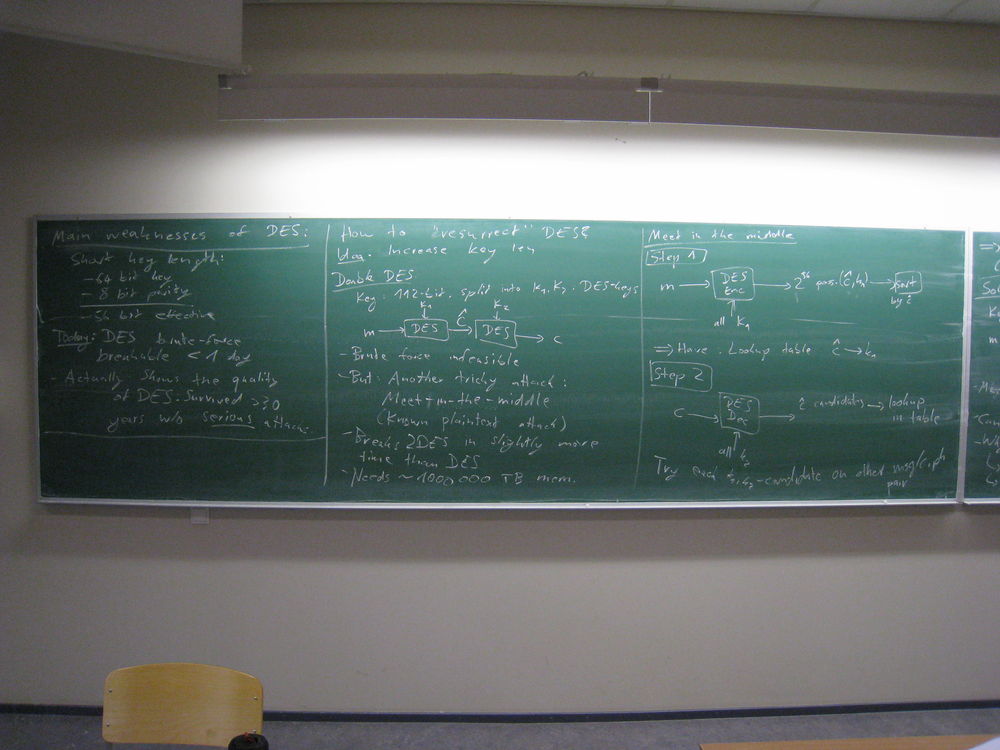 Main weaknesses of DES:
Short key length:
- 64 bit key
- 8 bit parity
- 56 bit effective
Today: DES brute-force
breakable < 1 day
- Actually shows the quality
of DES. Survived >30
years w/o serious attack.
How to "resurrect" DES?
Idea: Increase key len
Double DES
Key: 112-bit, split into K1, K2. DES-keys
K1 K2
m → DES → ĉ → DES → c
- Brute force infeasible
- But: Another tricky attack:
Meet-in-the-middle
(Known plaintext attack)
- Breaks 2DES in slightly more
time than DES
- Needs ~1000 000 TB mem.
Meet in the middle
Step 1
m → DES Enc → 2^56 pars. (ĉ, k1) → Sort by ĉ
all K1
⇒ Have. Lookup table ĉ → k1
Step 2
c → DES Dec → ĉ candidates → lookup in table
all k2
Try each k1, k2-candidate on other msg/c.ph
pair